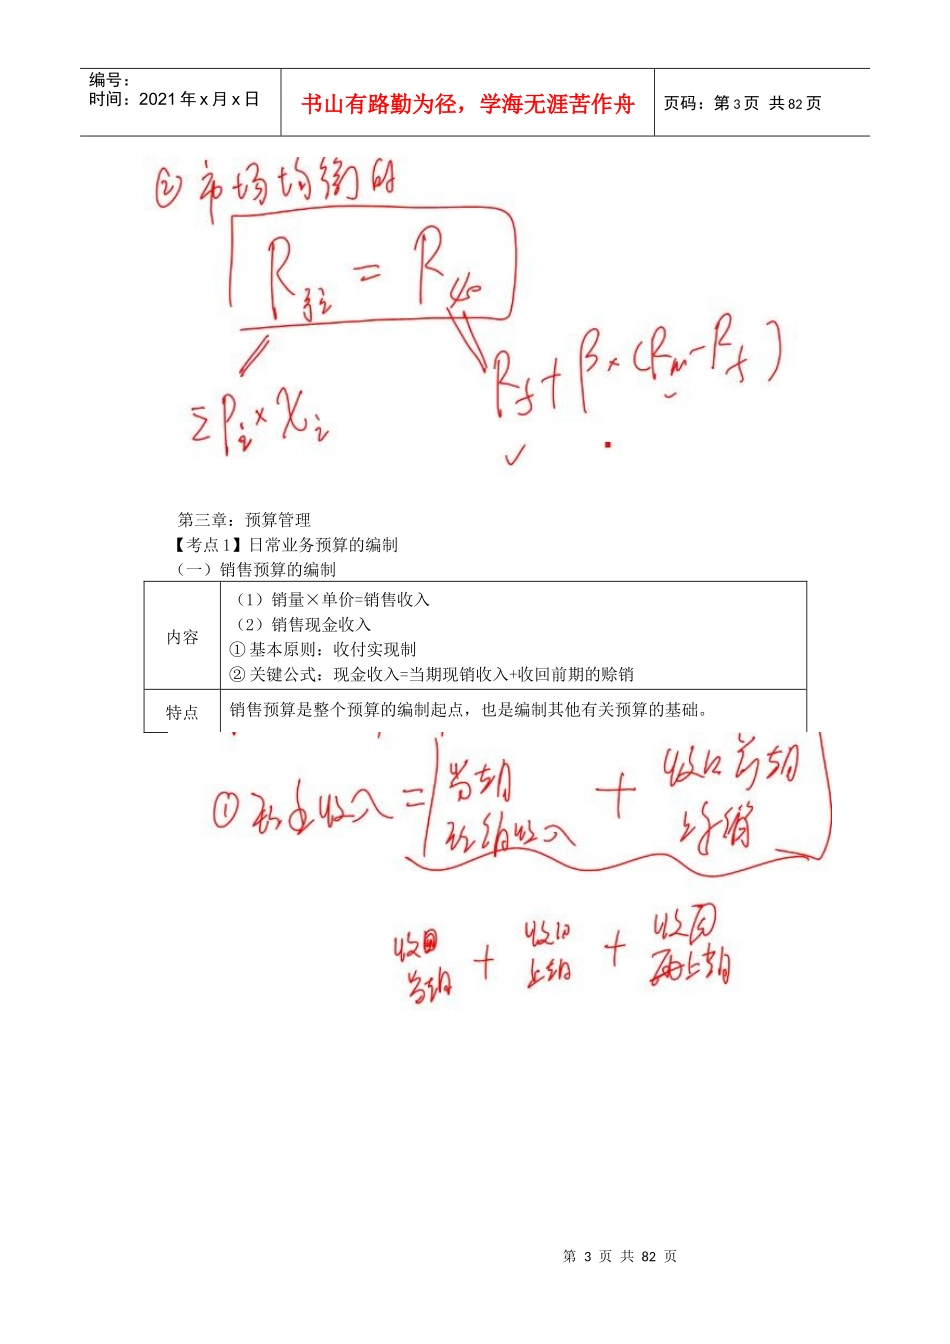 编号：
时间：2021年x月x日
书山有路勤为径，学海无涯苦作舟
页码：第3页 共82页
②市场均衡时
R = R
ΣPi×Xi
Rf+β×(Rm-Rf)
第三章：预算管理
【考点1】日常业务预算的编制
（一）销售预算的编制
内容
（1）销量×单价=销售收入
（2）销售现金收入
① 基本原则：收付实现制
② 关键公式：现金收入=当期现销收入+收回前期的赊销
特点
销售预算是整个预算的编制起点，也是编制其他有关预算的基础。
①现金收入=当期现销收入+收回前期赊销
收回当期+收回上期+收回再上期
第 3 页 共 82 页